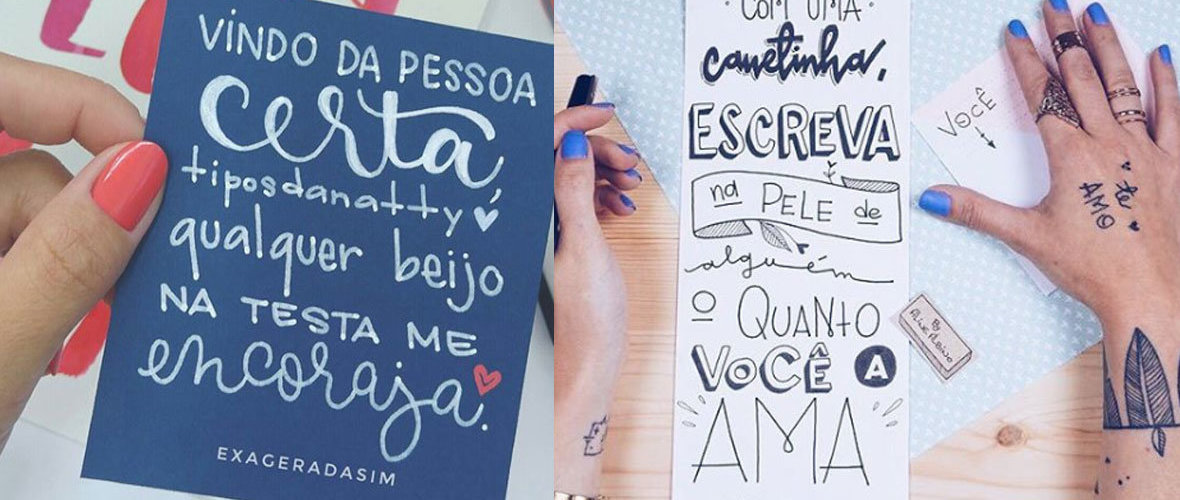 VINDO DA PESSOA
certa,
tiposdanatty
qualquer beijo
NA TESTA ME
encoraja.
EXAGERADASIM
COM UMA
canetinha,
ESCREVA
na PELE de
alguém
O QUANTO
VOCÊ A
AMA
VOCÊ
te
AMO
BY